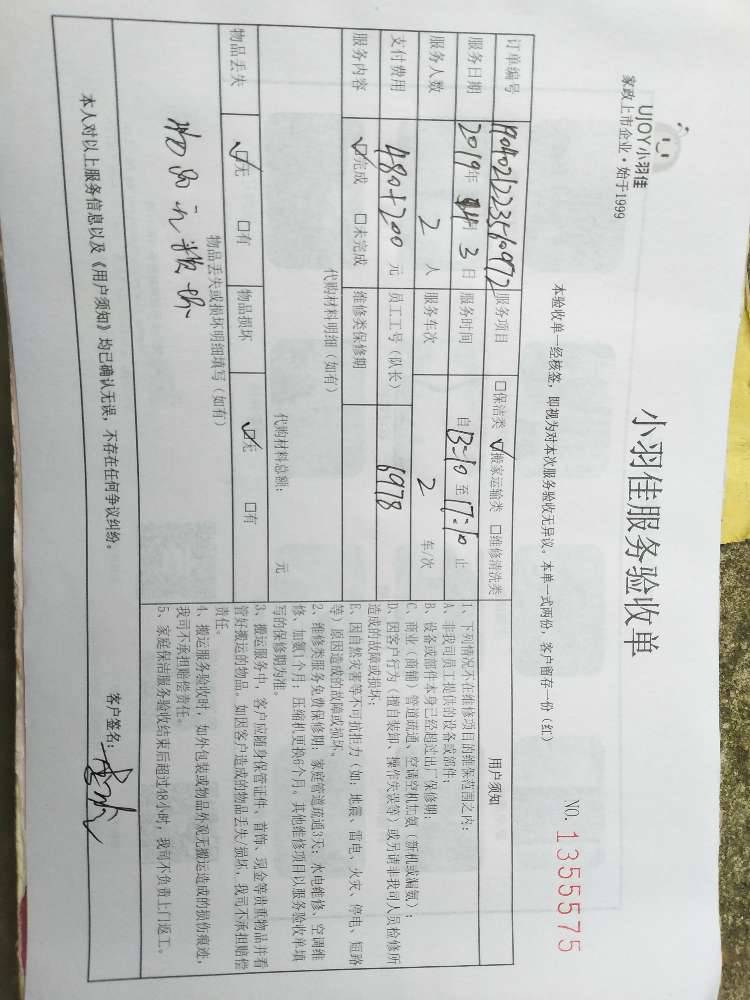 UJOY小羽佳
家政上市企业·始于1999
小羽佳服务验收单
NO. 1355575
本验收单一经核签，即视为对本次服务验收无异议。本单一式两份，客户留存一份（红）
订单编号 190402122356972 服务项目 □保洁类 ☑搬家运输类 □维修清洗类
服务日期 2019年 4月 3日 服务时间 自13:10至17:10止
服务人数 2人 服务车次 2 车/次
支付费用 480+200元 员工工号（队长） 6978
服务内容 ☑完成 □未完成 维修类保修期
代购材料明细（如有）
代购材料总额： 元
物品丢失 ☑无 □有 物品损坏 ☑无 □有
物品丢失或损坏明细填写（如有）
物品无损坏
用户须知
1、下列情况不在维修项目的维保范围之内：
A、非我司员工提供的设备或部件；
B、设备或部件本身已经超过出厂保修期；
C、商业（商铺）管道疏通、空调空机加氨（新机或漏氨）；
D、因客户行为（擅自装卸、操作失误等）或另请非我司人员检修所
造成的故障或损坏；
E、因自然灾害等不可抗拒力（如：地震、雷电、火灾、停电、短路
等）原因造成的故障或损坏。
2、维修类服务免费保修期：家庭管道疏通3天；水电维修、空调维
修、加氨1个月；压缩机更换6个月。其他维修项目以服务验收单填
写的保修期为准。
3、搬运服务中，客户应随身保管证件、首饰、现金等贵重物品并看
管好搬运的物品，如因客户造成的物品丢失/损坏，我司不承担赔偿
责任。
4、搬运服务验收时，如外包装或物品外观无搬运造成的损伤痕迹，
我司不承担赔偿责任。
5、家庭保洁服务验收结束后超过48小时，我司不负责上门返工。
本人对以上服务信息以及《用户须知》均已确认无误，不存在任何争议纠纷。
客户签名：